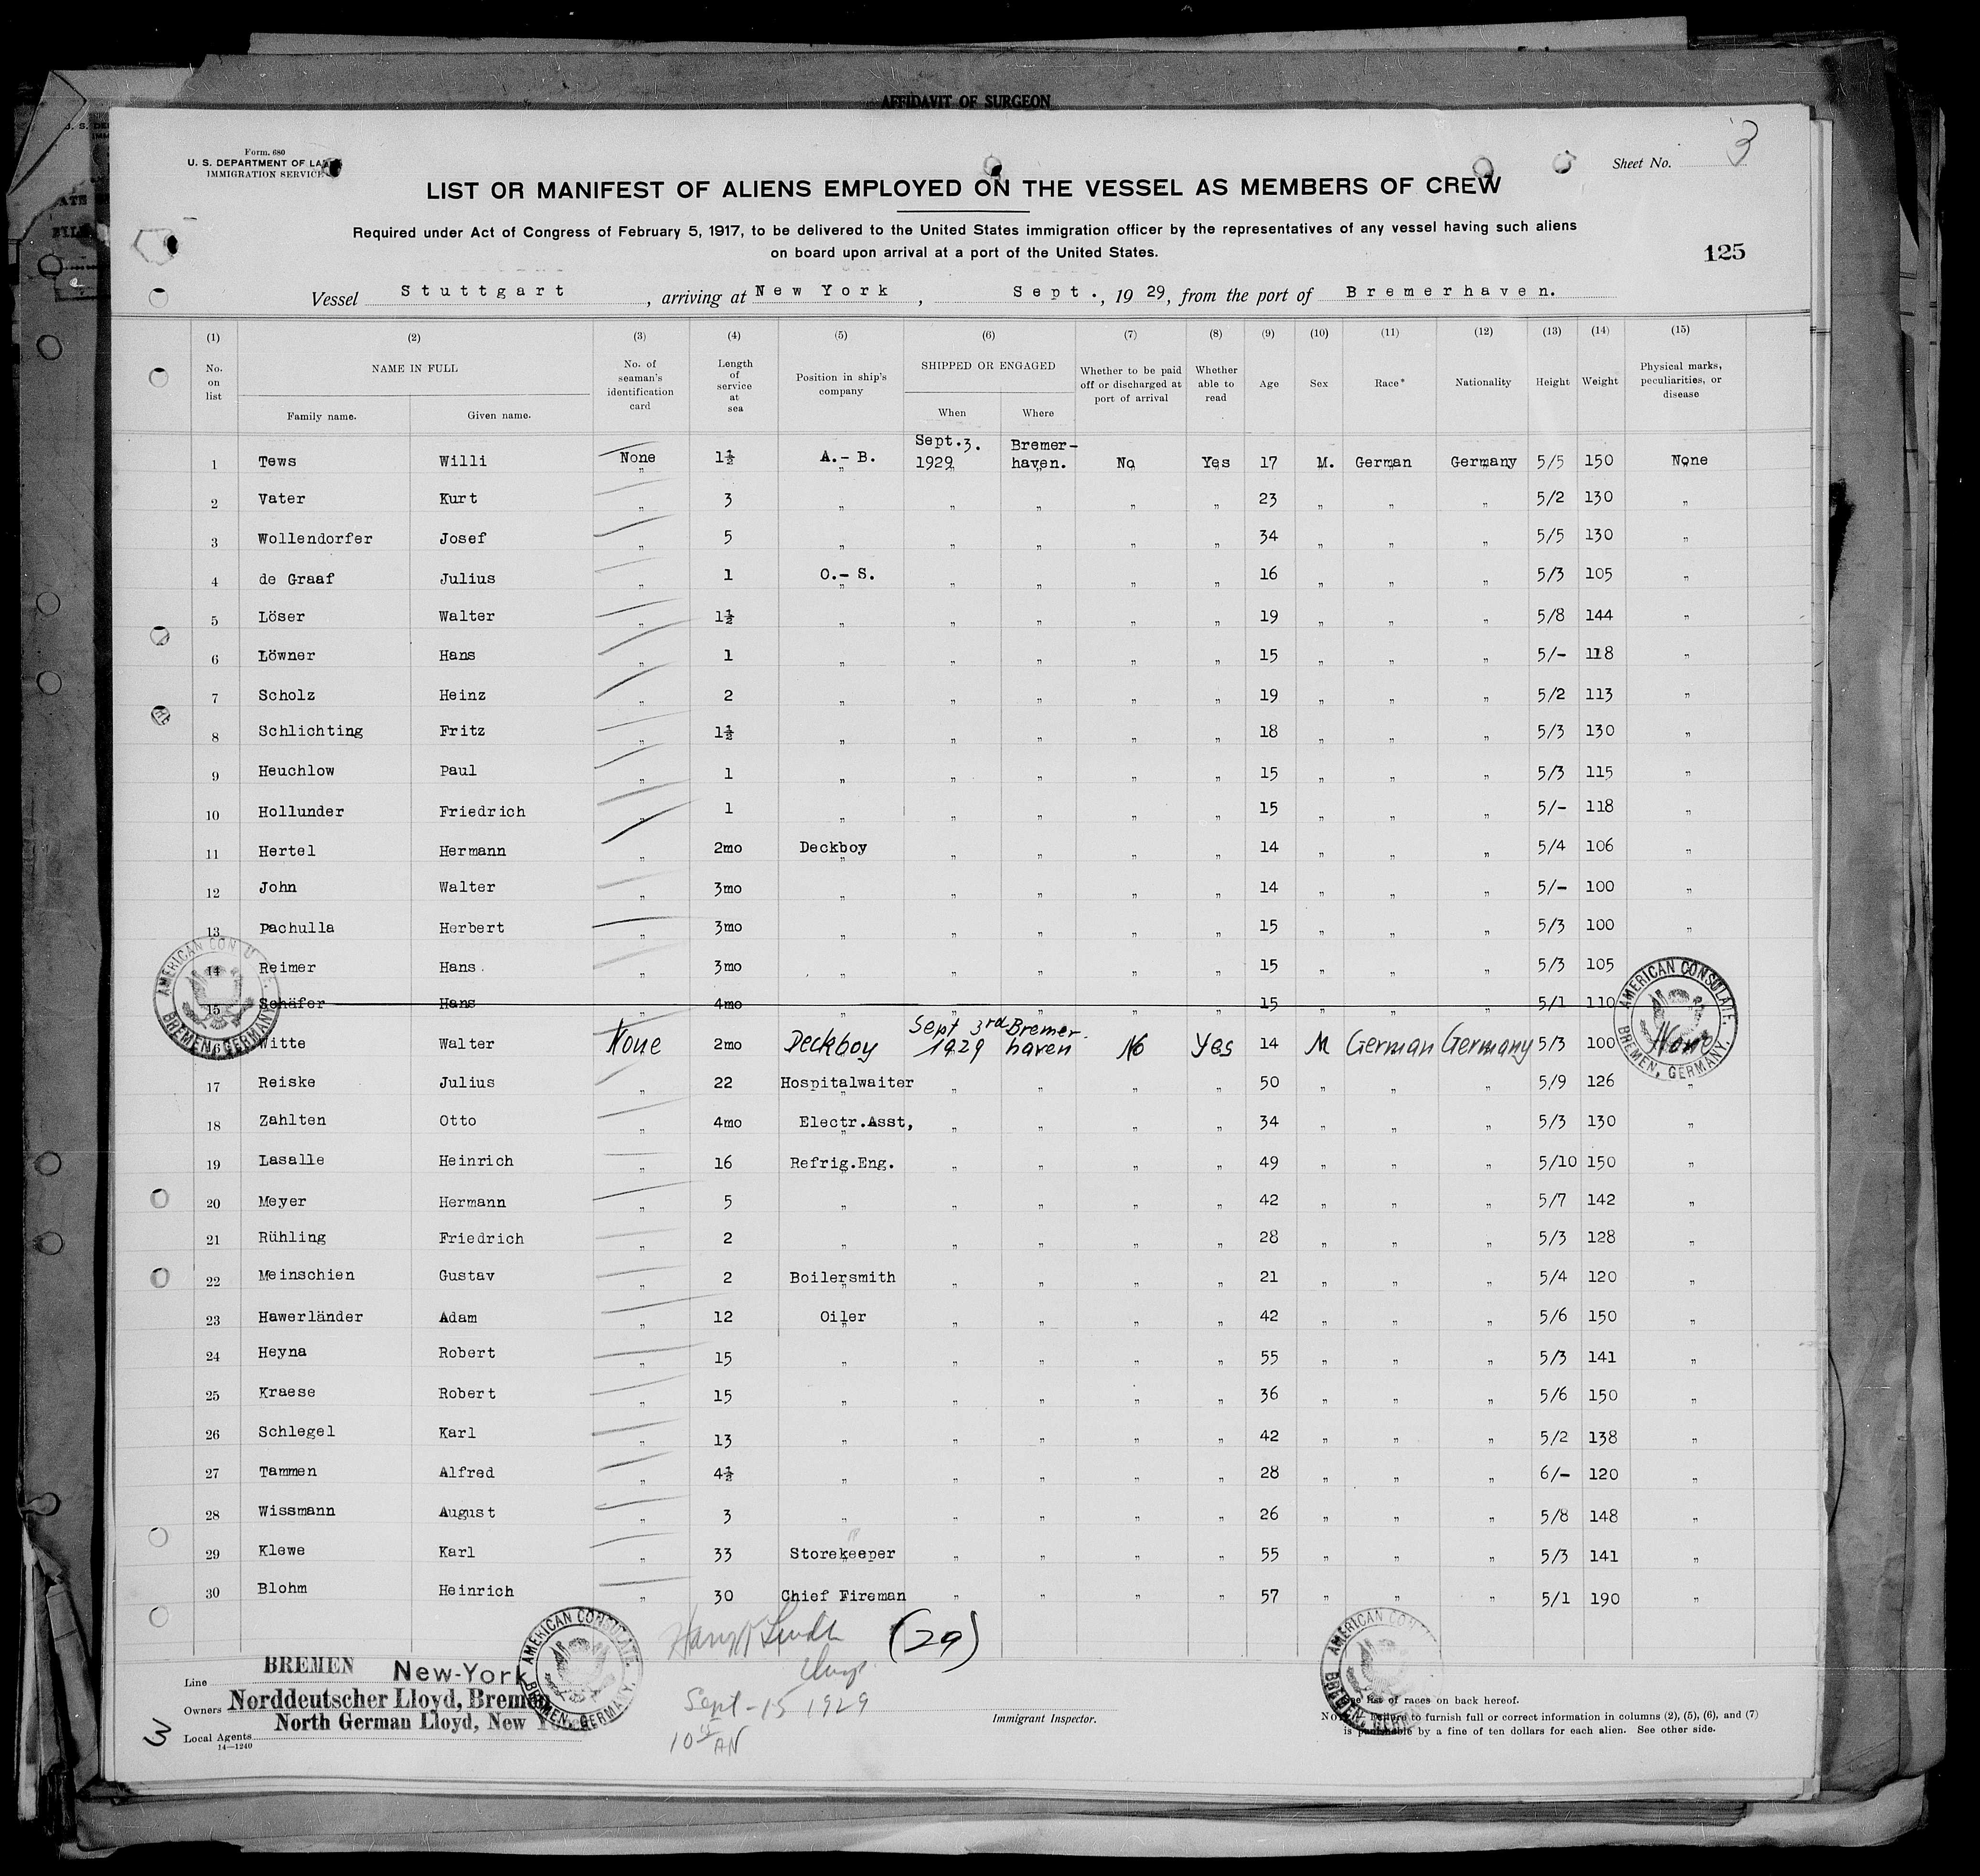 AFFIDAVIT OF SURGEON
Form. 680
U. S. DEPARTMENT OF LABOR
IMMIGRATION SERVICE
Sheet No. 3
LIST OR MANIFEST OF ALIENS EMPLOYED ON THE VESSEL AS MEMBERS OF CREW
Required under Act of Congress of February 5, 1917, to be delivered to the United States immigration officer by the representatives of any vessel having such aliens
on board upon arrival at a port of the United States.
125
Vessel Stuttgart, arriving at New York, Sept., 19 29, from the port of Bremerhaven.
(1) (2) (3) (4) (5) (6) (7) (8) (9) (10) (11) (12) (13) (14) (15)
No. on list NAME IN FULL Family name. Given name. No. of seaman's identification card Length of service at sea Position in ship's company SHIPPED OR ENGAGED When Where Whether to be paid off or discharged at port of arrival Whether able to read Age Sex Race* Nationality Height Weight Physical marks, peculiarities, or disease
1 Tews Willi None 1½ A.- B. Sept.3. 1929 Bremer- haven. No Yes 17 M. German Germany 5/5 150 None
2 Vater Kurt „ 3 „ „ „ „ „ 23 „ „ „ 5/2 130 „
3 Wollendorfer Josef „ 5 „ „ „ „ „ 34 „ „ „ 5/5 130 „
4 de Graaf Julius „ 1 O.- S. „ „ „ „ 16 „ „ „ 5/3 105 „
5 Löser Walter „ 1½ „ „ „ „ „ 19 „ „ „ 5/8 144 „
6 Löwner Hans „ 1 „ „ „ „ „ 15 „ „ „ 5/- 118 „
7 Scholz Heinz „ 2 „ „ „ „ „ 19 „ „ „ 5/2 113 „
8 Schlichting Fritz „ 1½ „ „ „ „ „ 18 „ „ „ 5/3 130 „
9 Heuchlow Paul „ 1 „ „ „ „ „ 15 „ „ „ 5/3 115 „
10 Hollunder Friedrich „ 1 „ „ „ „ „ 15 „ „ „ 5/- 118 „
11 Hertel Hermann „ 2mo Deckboy „ „ „ „ 14 „ „ „ 5/4 106 „
12 John Walter „ 3mo „ „ „ „ „ 14 „ „ „ 5/- 100 „
13 Pachulla Herbert „ 3mo „ „ „ „ „ 15 „ „ „ 5/3 100 „
14 Reimer Hans „ 3mo „ „ „ „ „ 15 „ „ „ 5/3 105
15 Schäfer Hans „ 4mo „ „ „ „ „ 15 „ „ „ 5/1 110
16 Witte Walter None 2mo Deckboy Sept 3rd 1929 Bremer- haven No Yes 14 M German Germany 5/3 100 None
17 Reiske Julius „ 22 Hospitalwaiter „ „ „ „ 50 „ „ „ 5/9 126 „
18 Zahlten Otto „ 4mo Electr.Asst, „ „ „ „ 34 „ „ „ 5/3 130 „
19 Lasalle Heinrich „ 16 Refrig.Eng. „ „ „ „ 49 „ „ „ 5/10 150 „
20 Meyer Hermann „ 5 „ „ „ „ „ 42 „ „ „ 5/7 142 „
21 Rühling Friedrich „ 2 „ „ „ „ „ 28 „ „ „ 5/3 128 „
22 Meinschien Gustav „ 2 Boilersmith „ „ „ „ 21 „ „ „ 5/4 120 „
23 Hawerländer Adam „ 12 Oiler „ „ „ „ 42 „ „ „ 5/6 150 „
24 Heyna Robert „ 15 „ „ „ „ „ 55 „ „ „ 5/3 141 „
25 Kraese Robert „ 15 „ „ „ „ „ 36 „ „ „ 5/6 150 „
26 Schlegel Karl „ 13 „ „ „ „ „ 42 „ „ „ 5/2 138 „
27 Tammen Alfred „ 4½ „ „ „ „ „ 28 „ „ „ 6/- 120 „
28 Wissmann August „ 3 „ „ „ „ „ 26 „ „ „ 5/8 148 „
29 Klewe Karl „ 33 Storekeeper „ „ „ „ 55 „ „ „ 5/3 141 „
30 Blohm Heinrich „ 30 Chief Fireman „ „ „ „ 57 „ „ „ 5/1 190 „
AMERICAN CONSULATE. BREMEN, GERMANY.
(29)
Sept-15 1929
10 AM
Line BREMEN New-York
Owners Norddeutscher Lloyd, Bremen
North German Lloyd, New York
Local Agents
14—1240
3
Immigrant Inspector.
See list of races on back hereof.
NOTE.—Failure to furnish full or correct information in columns (2), (5), (6), and (7)
is punishable by a fine of ten dollars for each alien. See other side.